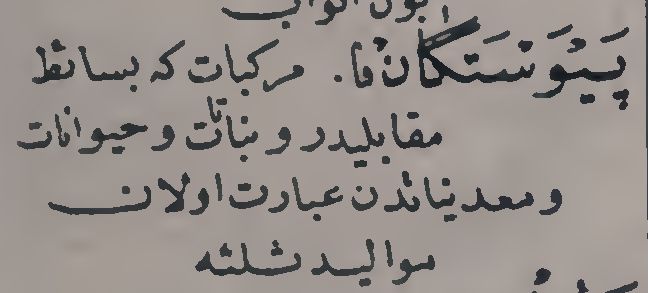 پَیْوَسْتَگَانْ فا. مرکبات که بسائط
مقابلیدر و نباتات و حیوانات
و معدنیاتدن عبارت اولان
موالید ثلثه